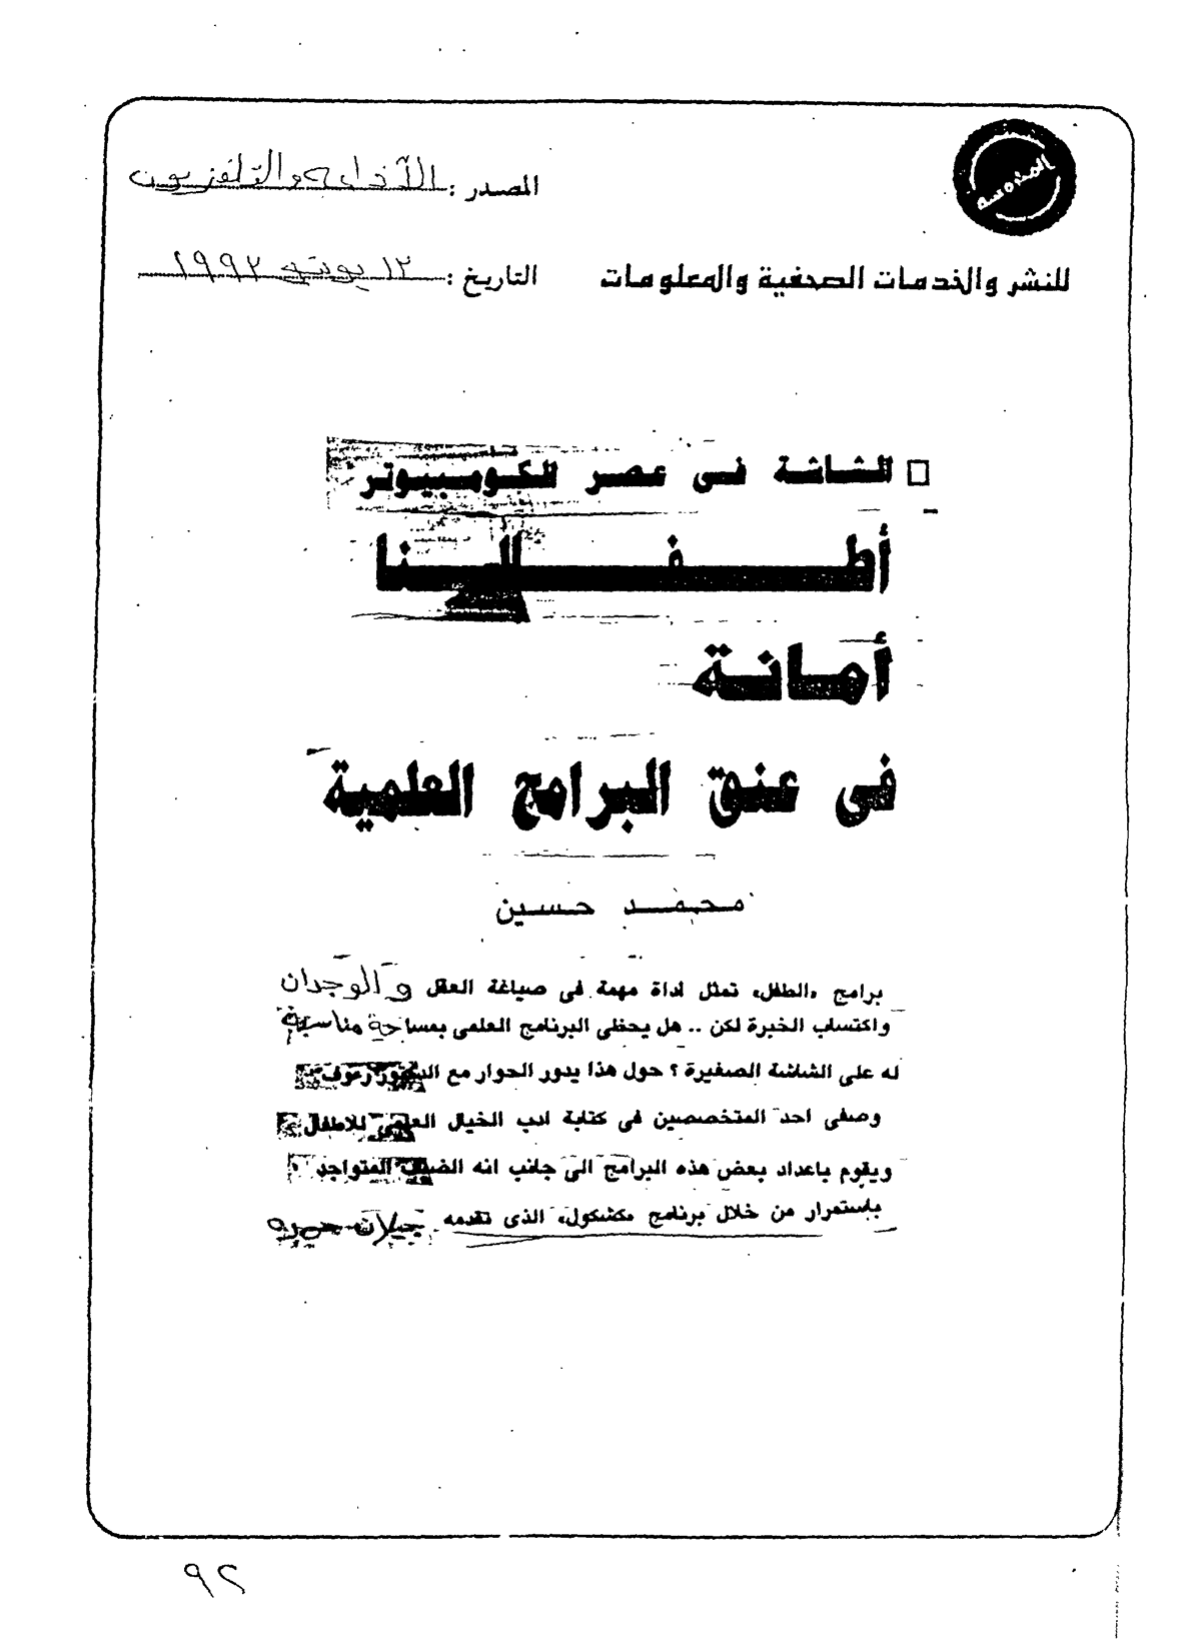 المحروسة
المصدر : الاذاعة والتلفزيون
للنشر والخدمات الصحفية والمعلومات
التاريخ : ١٢ يونيه ١٩٩٢
الشاشة فى عصر الكومبيوتر
أطفالنا
أمانة
فى عنق البرامج العلمية
محمد حسين
برامج «الطفل» تمثل اداة مهمة فى صياغة العقل والوجدان
واكتساب الخبرة لكن .. هل يحظى البرنامج العلمى بمساحة مناسبة
له على الشاشة الصغيرة ؟ حول هذا يدور الحوار مع الدكتور رءوف
وصفى احد المتخصصين فى كتابة ادب الخيال العلمى للاطفال
ويقوم باعداد بعض هذه البرامج الى جانب انه الضيف المتواجد
باستمرار من خلال برنامج «كشكول» الذى تقدمه جيلان حمزه
٩٢